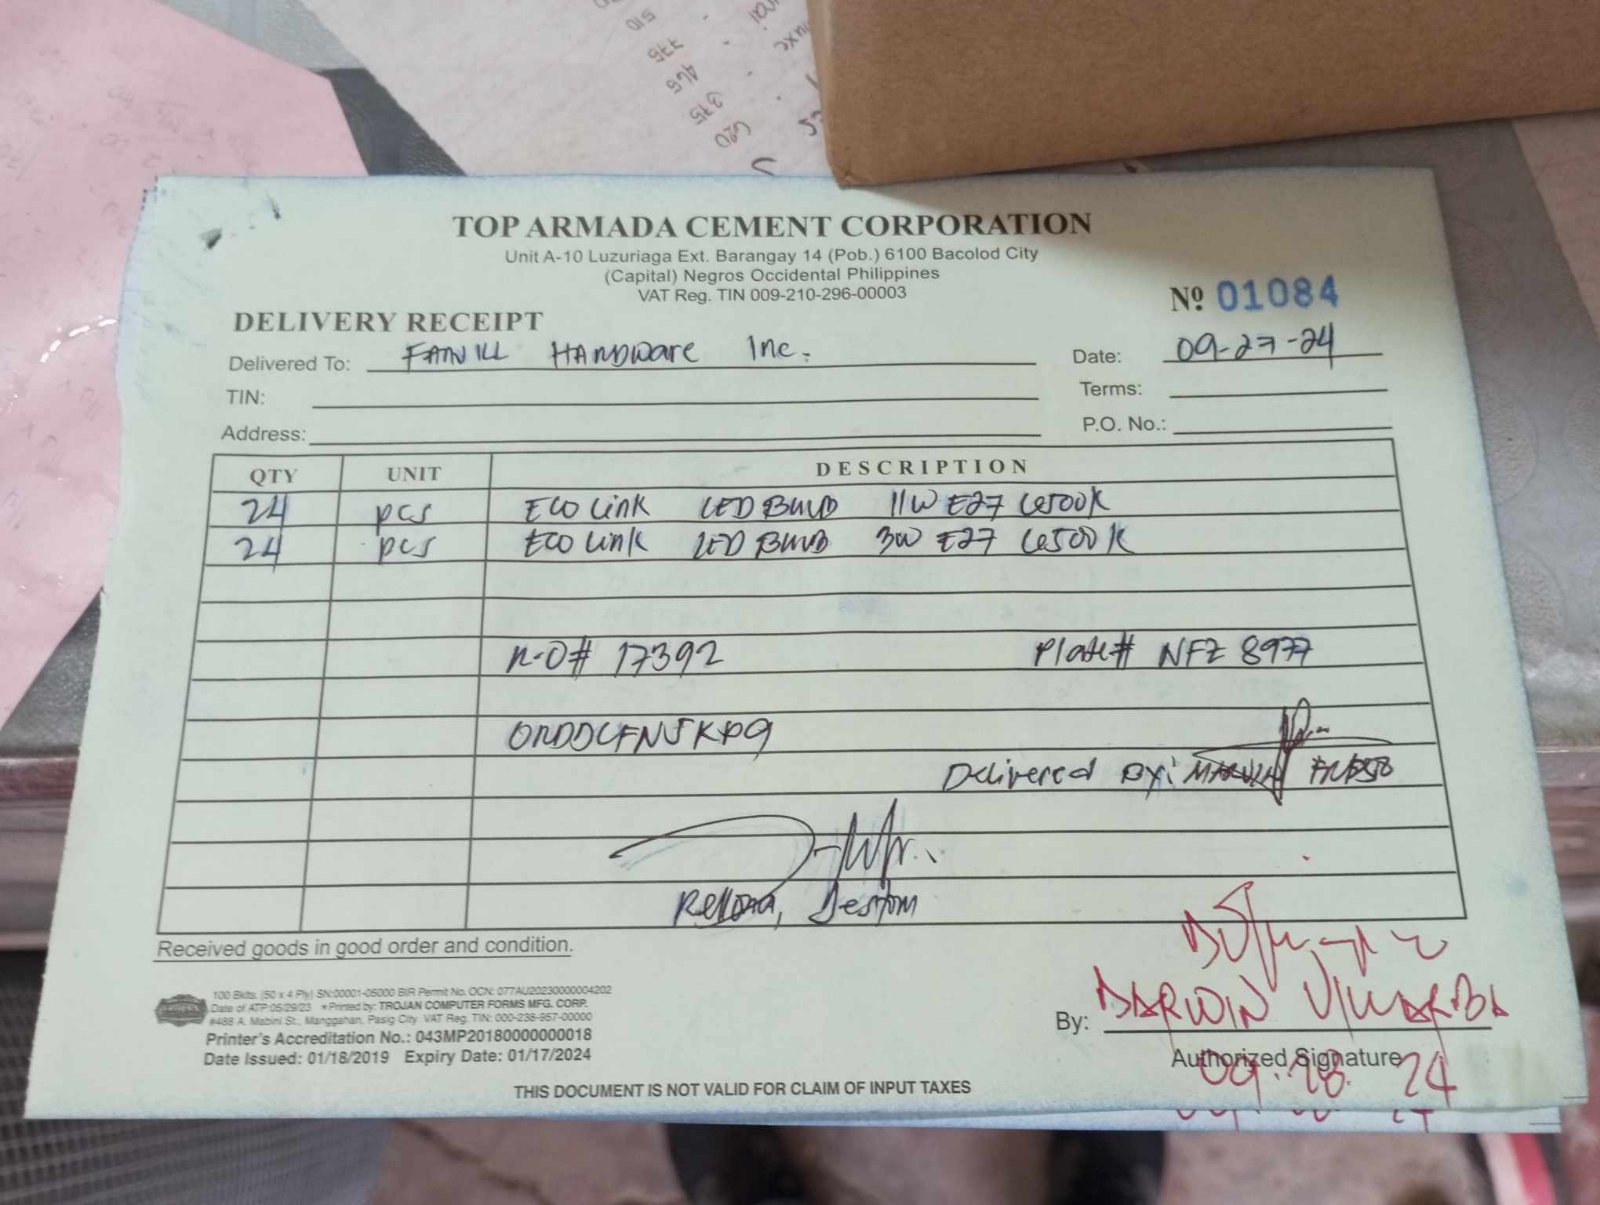 510
775
465
375
620
TOP ARMADA CEMENT CORPORATION
Unit A-10 Luzuriaga Ext. Barangay 14 (Pob.) 6100 Bacolod City
(Capital) Negros Occidental Philippines
VAT Reg. TIN 009-210-296-00003
Nº 01084
DELIVERY RECEIPT
Delivered To: FANVILL HARDWare Inc.
Date: 09-27-24
TIN:
Terms:
Address:
P.O. No.:
QTY UNIT DESCRIPTION
24 pcs ECO Link LED BULB 11W E27 6500K
24 pcs ECO Link LED BULB 3W E27 6500K
R-O# 17392 Plate# NFZ 8977
ORDDCFN5KP9
Delivered By:
Received goods in good order and condition.
100 Bkits. (50 x 4 Ply) SN:00001-05000 BIR Permit No. OCN: 077AU20230000004202
Date of ATP 05/29/23 • Printed by: TROJAN COMPUTER FORMS MFG. CORP.
#488 A. Mabini St., Manggahan, Pasig City VAT Reg. TIN: 000-238-957-00000
Printer's Accreditation No.: 043MP20180000000018
Date Issued: 01/18/2019 Expiry Date: 01/17/2024
By: DARWIN VILLARBA
Authorized Signature
09.28.24
THIS DOCUMENT IS NOT VALID FOR CLAIM OF INPUT TAXES